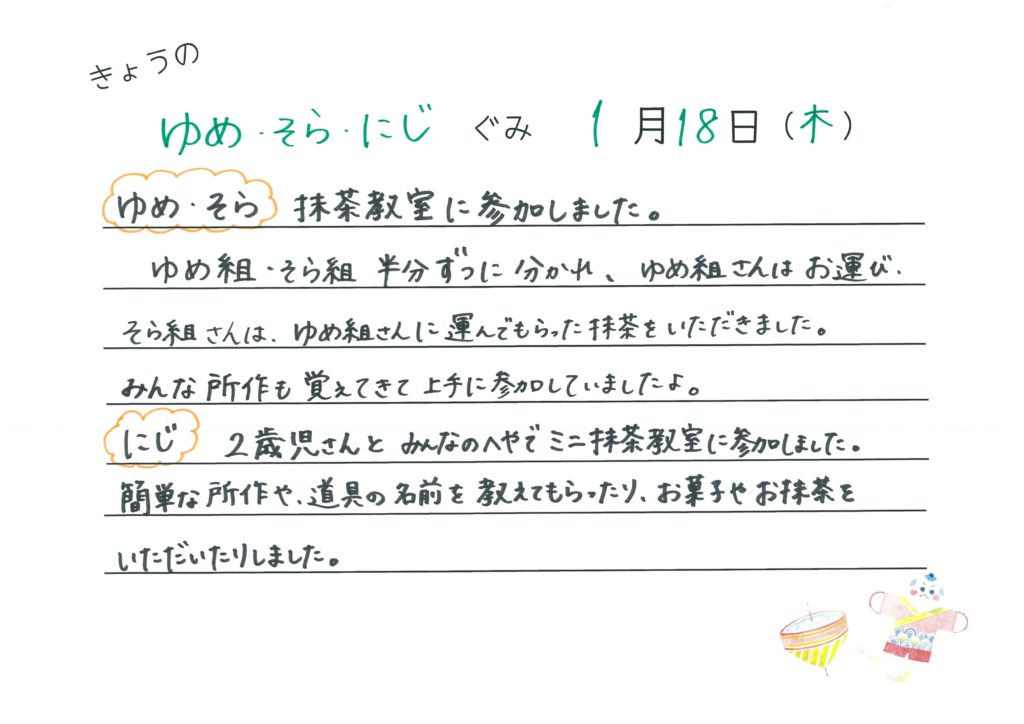 きょうの
ゆめ・そら・にじ ぐみ 1月18日(木)
ゆめ・そら 抹茶教室に参加しました。
ゆめ組・そら組 半分ずつに分かれ、ゆめ組さんはお運び、
そら組さんは、ゆめ組さんに運んでもらった抹茶をいただきました。
みんな所作も覚えてきて上手に参加していましたよ。
にじ 2歳児さんとみんなのへやでミニ抹茶教室に参加しました。
簡単な所作や、道具の名前を教えてもらったり、お菓子やお抹茶を
いただいたりしました。